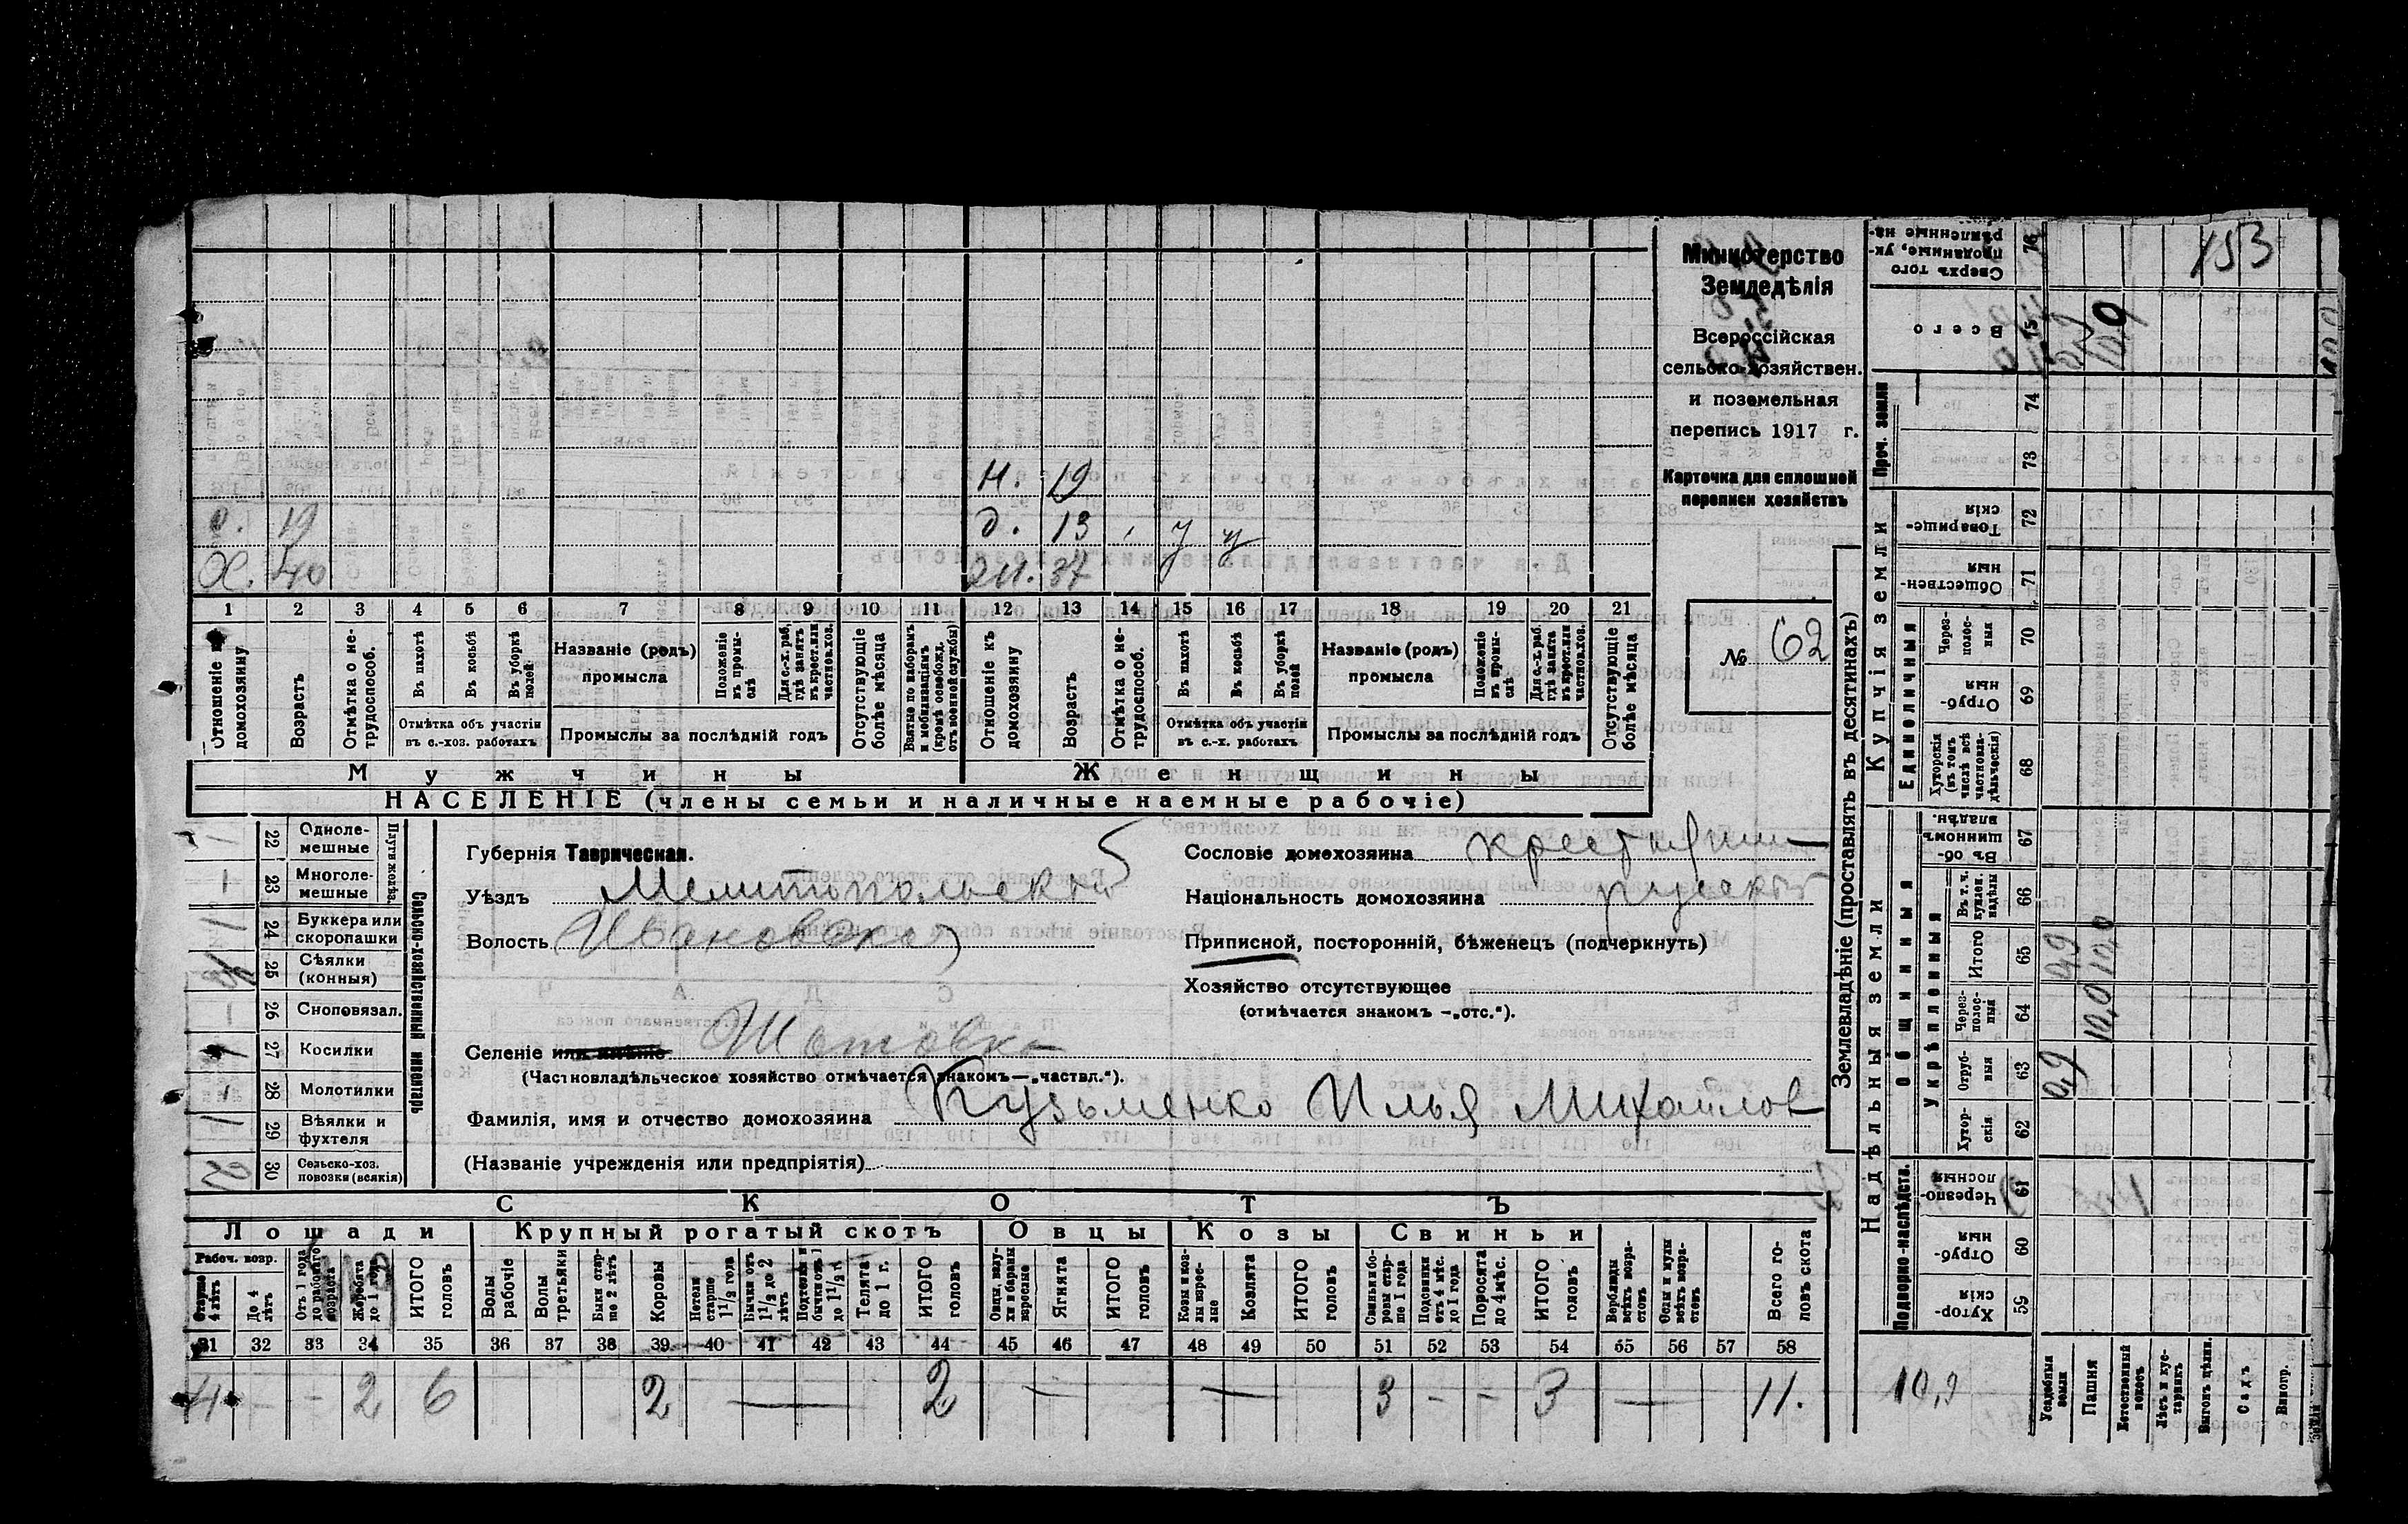 453
Министерство
Земледѣлія
Всероссійская
сельско-хозяйствен.
и поземельная
перепись 1917 г.
Карточка для сплошной
переписи хозяйствъ
№ 62
н. 19
о. 19
д. 13 у у
Х. 40
37
1 2 3 4 5 6 7 8 9 10 11 12 13 14 15 16 17 18 19 20 21
Отношеніе къ домохозяину
Возрастъ
Отмѣтка о нетрудоспособ.
Въ пахотѣ
Въ косьбѣ
Въ уборкѣ полей
Отмѣтка объ участіи въ с.-хоз. работахъ
Названіе (родъ) промысла
Положеніе въ промыслѣ
Для с.-х. раб. гдѣ занятъ въ крест. или частнов. хоз.
Промыслы за послѣдній годъ
Отсутствующіе болѣе мѣсяца
Взятые по наборамъ и мобилизаціямъ (кромѣ освобожд. отъ военной службы)
Отношеніе къ домохозяину
Возрастъ
Отмѣтка о нетрудоспособ.
Въ пахотѣ
Въ косьбѣ
Въ уборкѣ полей
Отмѣтка объ участіи въ с.-х. работахъ
Названіе (родъ) промысла
Положеніе въ промыслѣ
Для с.-х. раб. гдѣ занята въ крест. или частнов. хоз.
Промыслы за послѣдній годъ
Отсутствующіе болѣе мѣсяца
Мужчины Женщины
НАСЕЛЕНІЕ (члены семьи и наличные наемные рабочіе)
Сельско-хозяйственный инвентарь
22 Однолемешные
23 Многолемешные
24 Буккера или скоропашки
25 Сѣялки (конныя)
26 Сноповязал.
27 Косилки
28 Молотилки
29 Вѣялки и фухтеля
30 Сельско-хоз. повозки (всякія)
Губернія Таврическая.
Уѣздъ Мелитопольскій
Волость Ивановская
Сословіе домохозяина крестьянин
Національность домохозяина русский
Приписной, посторонній, бѣженецъ (подчеркнуть)
Хозяйство отсутствующее
(отмѣчается знакомъ —„отс.“).
Селеніе или имѣніе Шотовка
(Частновладѣльческое хозяйство отмѣчается знакомъ—„частвл.“).
Фамилія, имя и отчество домохозяина Кузьменко Илья Михайлов
(Названіе учрежденія или предпріятія)
СКОТЪ
Лошади Крупный рогатый скотъ Овцы Козы Свиньи
Рабоч. возр.
Старше 4 лѣтъ
До 4 лѣтъ
Отъ 1 года до рабочаго возраста
Жеребята до 1 года
ИТОГО головъ
Волы рабочіе
Волы третьяки
Быки старше 2 лѣтъ
Коровы
Нетели старше 1 1/2 года
Бычки отъ 1 1/2 до 2 лѣтъ
Подтелки и бычки отъ 1 до 1 1/2 г.
Телята до 1 г.
ИТОГО головъ
Овцы, валухи и бараны взрослые
Ягнята
ИТОГО головъ
Козы и козлы взрослые
Козлята
ИТОГО головъ
Свиньи и боровы старше 1 года
Подсвинки отъ 4 мѣс. до 1 года
Поросята до 4 мѣс.
ИТОГО головъ
Верблюды всѣхъ возрастовъ
Ослы и мулы всѣхъ возрастовъ
Всего головъ скота
31 32 33 34 35 36 37 38 39 40 41 42 43 44 45 46 47 48 49 50 51 52 53 54 55 56 57 58
4 - - 2 6 2 — 2 — — 3 - - 3 — 11.
Землевладѣніе (проставлять въ десятинахъ)
Надѣльныя земли
Купчія земли
Проч. земли
Подворно-наслѣдств.
Общинныя
Укрѣпленныя
Единоличныя
Сверхъ того проданные, укрѣпленные на- 76
Всего 75 0,9 10,0
74
73
Товарищескія 72
Общественныя 71
Черезполосныя 70
Отрубныя 69
Хуторскія (въ томъ числѣ всѣ частновладѣльческія) 68
Въ общинномъ владѣн. 67
Въ т. ч. куплен. надѣлы 66
Итого 65 0,9 10,0
Черезполосныя 64 10,0
Отрубныя 63 0,9
Хуторскія 62
Черезполосный 61
Отрубныя 60
Хуторскія 59
10,9
Усадебныя земли
Пашня
Естественный покосъ
Лѣсъ и кустарникъ
Выгонъ цѣлин.
Садъ
Виногр.